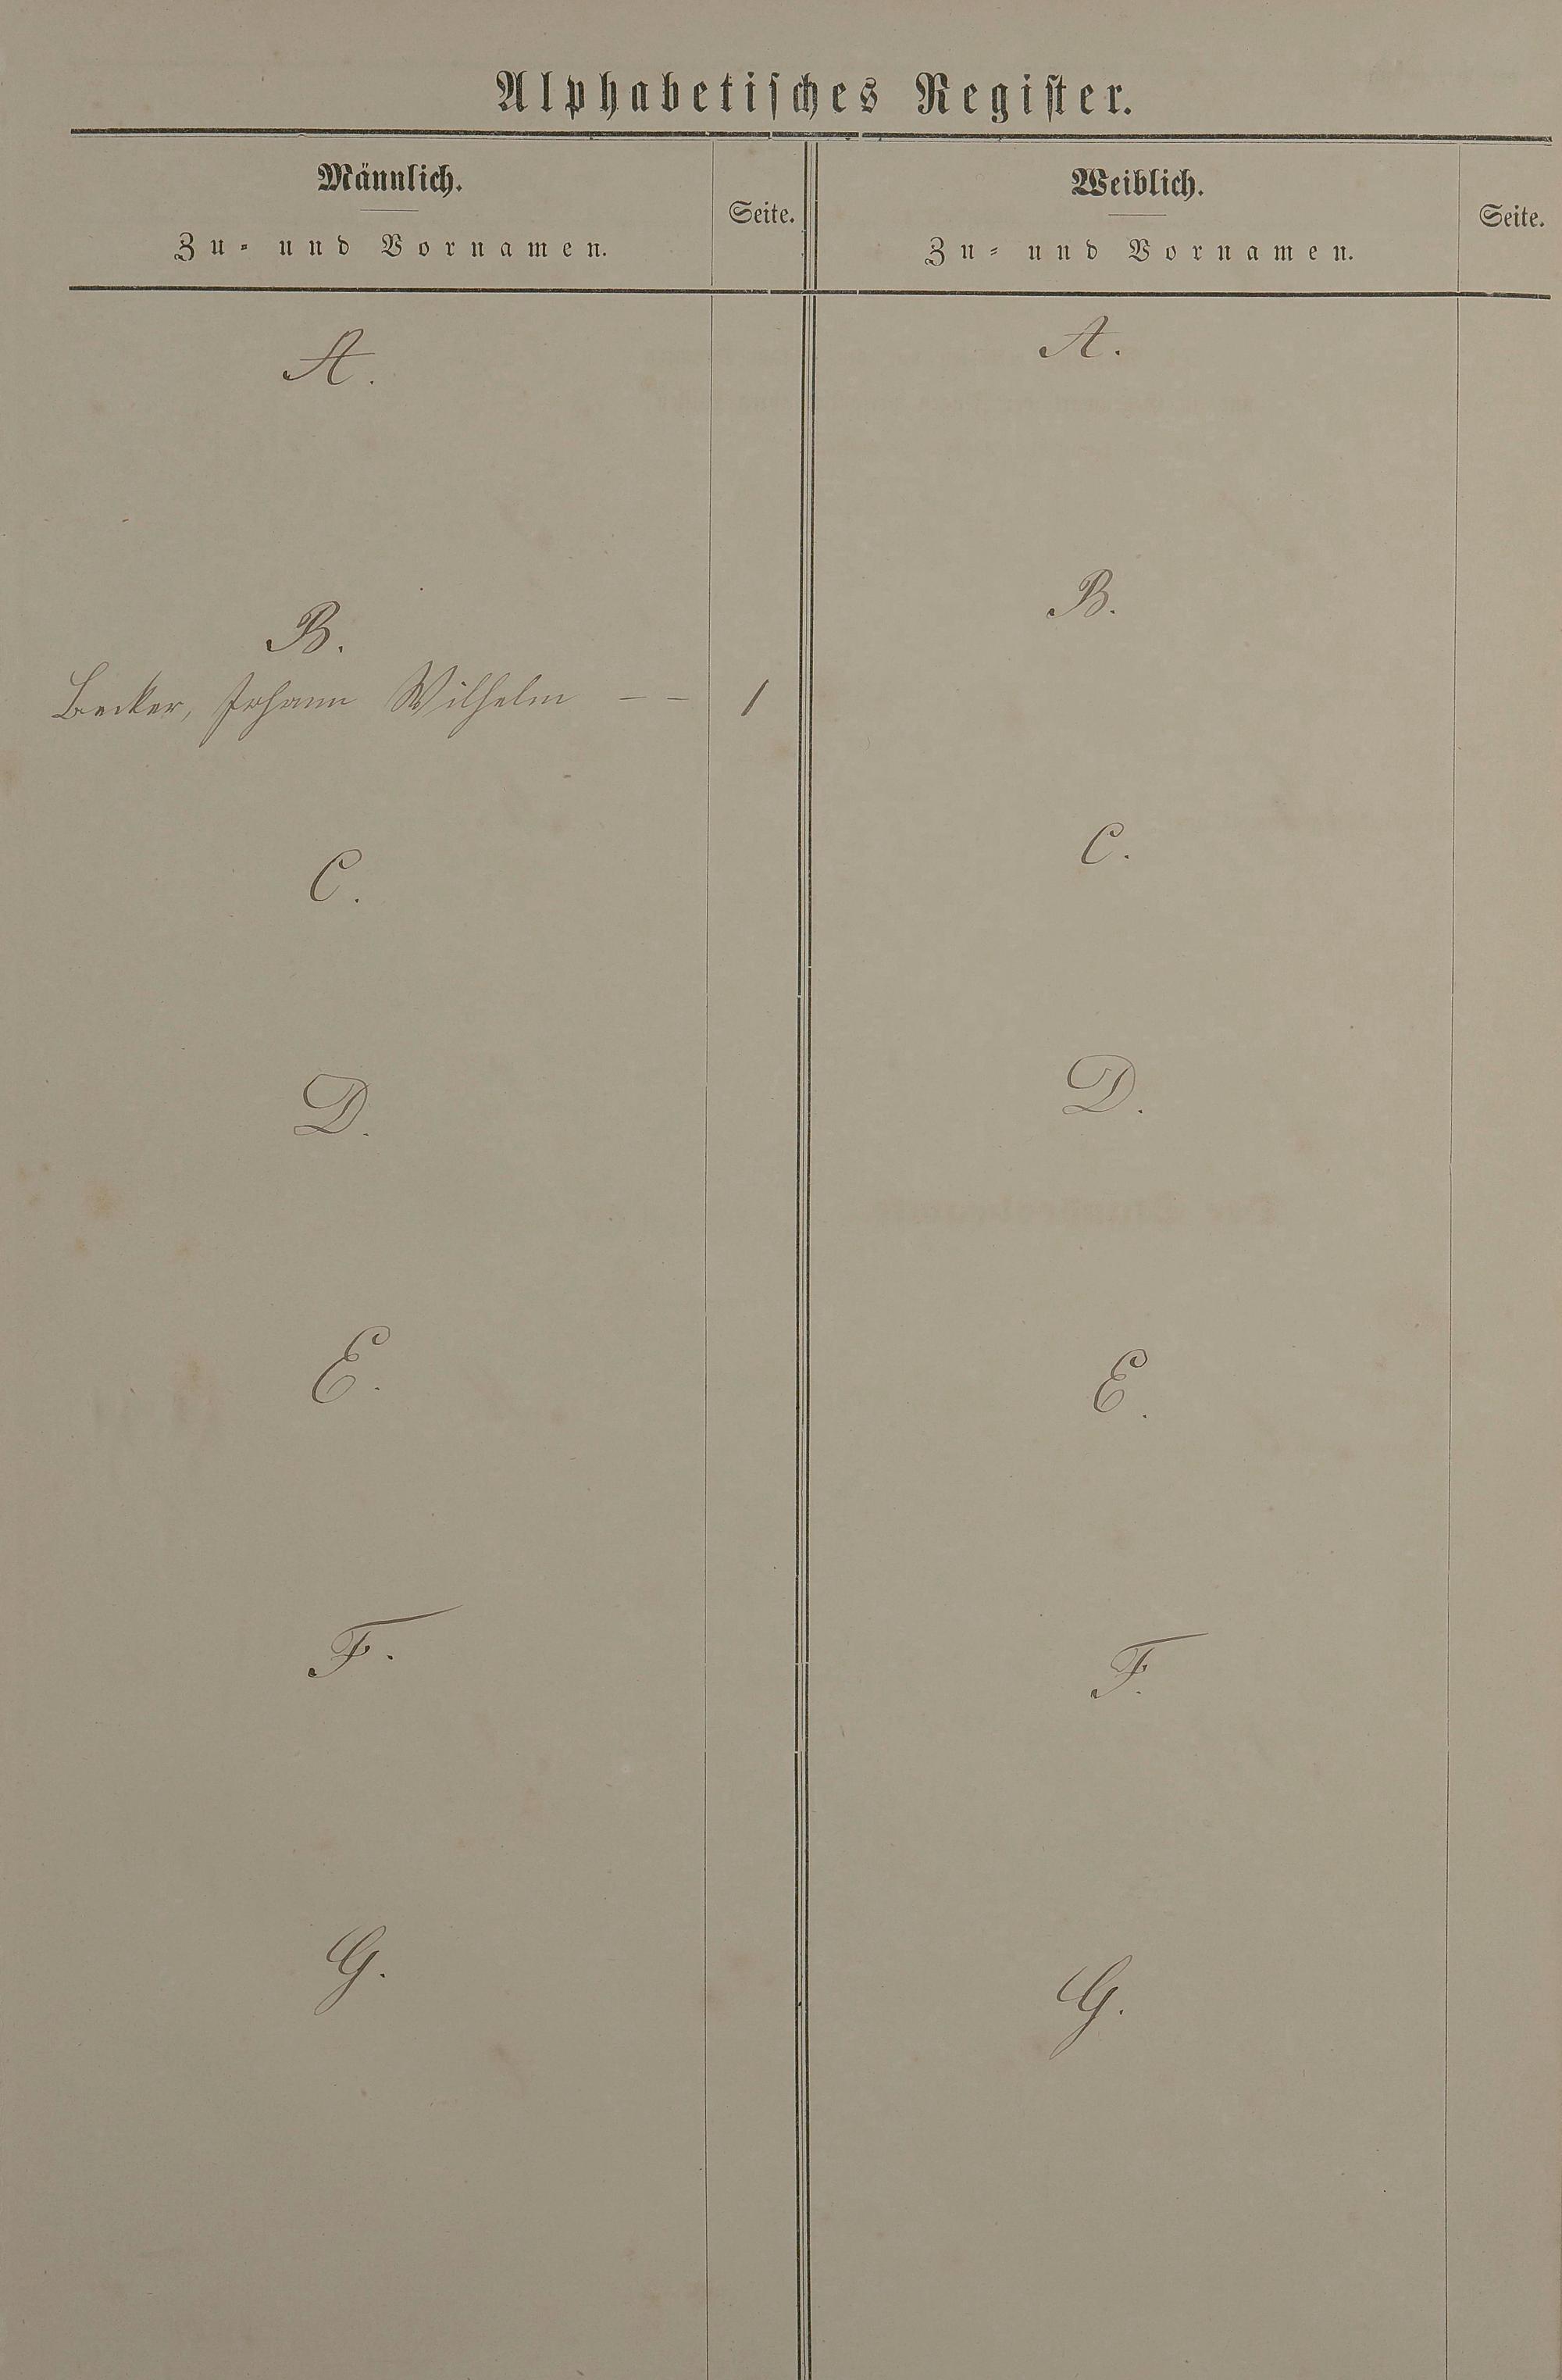 Alphabetisches Register.
Männlich.
Zu- und Vornamen.
Seite.
Weiblich.
Zu- und Vornamen.
Seite.
A.
B.
Becker, Johann Wilhelm — — 1
C.
D.
E.
F.
G.
A.
B.
C.
D.
E.
F.
G.